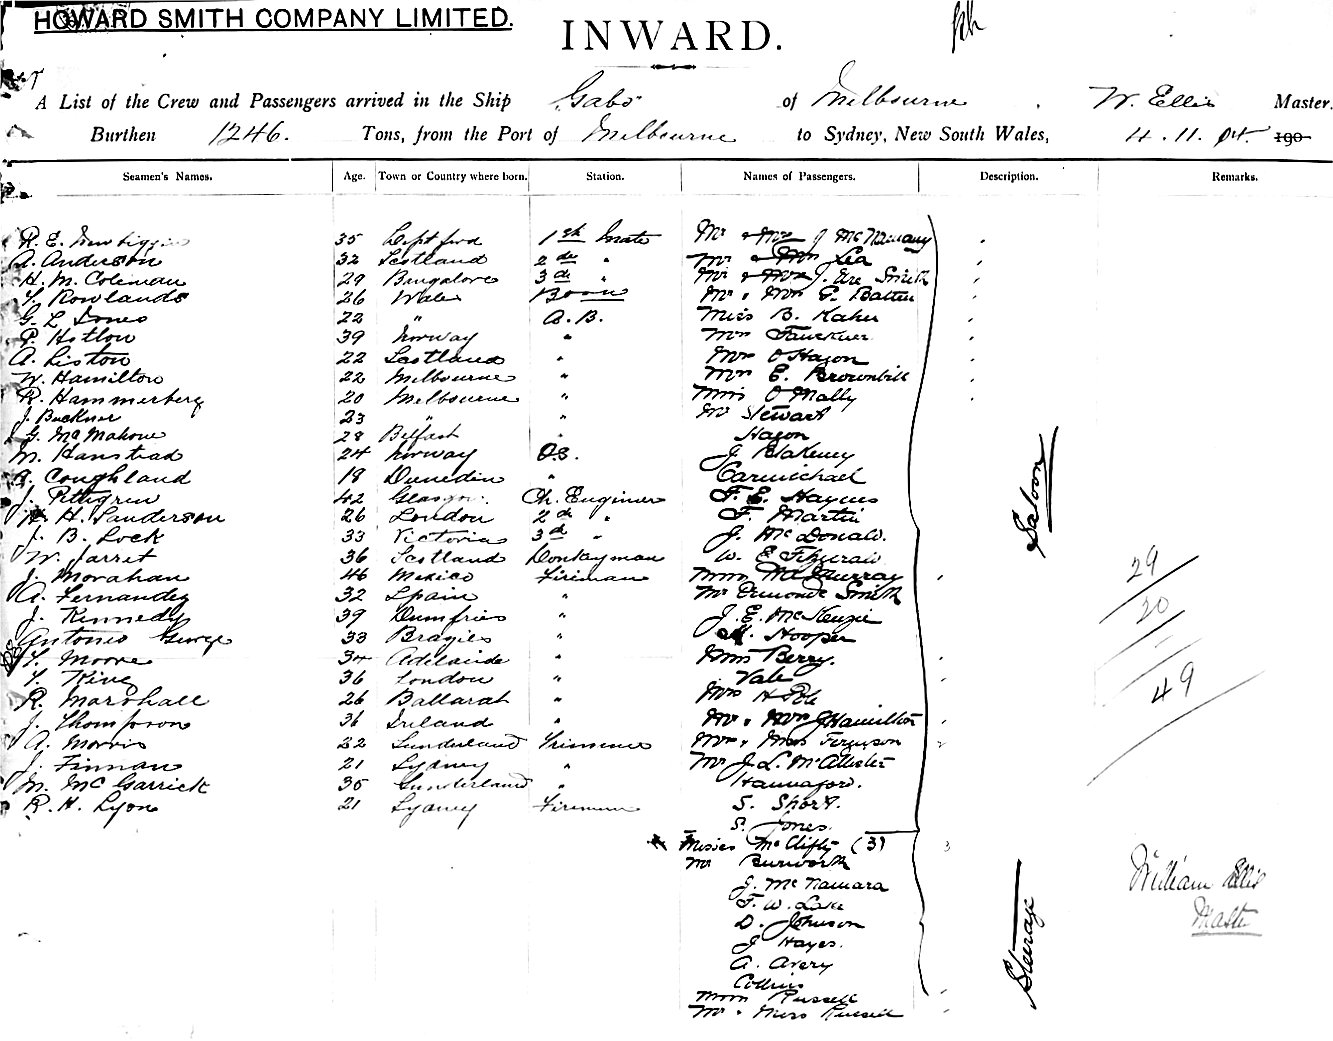 HOWARD SMITH COMPANY LIMITED.
INWARD.
A List of the Crew and Passengers arrived in the Ship Gabo of Melbourne W. Ellis Master.
Burthen 1246. Tons, from the Port of Melbourne to Sydney, New South Wales, 4.11.04. 190
Seamen's Names. Age. Town or Country where born. Station. Names of Passengers. Description. Remarks.
R. E. 35 Deptford 1st Mate Mr & Mrs J
A. Anderson 32 Scotland 2nd " Mr & Mrs Lea
H. M. Coleman 29 Bangalore 3rd " Mr & Mrs J. Smith
T. Rowlands 26 Wales Bosun Mr & Mrs E. Batten
G. L. Jones 22 " A. B. Miss B. Kahn
P. 39 Norway " Mrs Faulkner
A. Liston 22 Scotland " Mrs O'Hagon
W. Hamilton 22 Melbourne " Mrs E. Brownbill
R. Hammerberg 20 Melbourne " Miss O'Mally
J. Buckner 23 " " Mr Stewart
G. McMahone 28 Belfast " Hagon
M. Hanstad 24 Norway O.S. J. Blakeney
A. Coughland 18 Dunedin " Carmichael
J. Pettigrew 42 Glasgow Ch. Engineer F. E. Haynes
H. Sanderson 26 London 2nd " F. Martin
J. B. Lock 33 Victoria 3rd " J. McDonald.
W. Jarret 36 Scotland Donkeyman W. E. Fitzgerald
J. Morahan 46 Mexico Fireman McMurray
A. Fernandez 32 Spain " Mr Smith
J. Kennedy 39 Dumfries " J. E. McKenzie
Antonio George 33 " Hooper
T. Moore 34 Adelaide " Miss Berry.
T. King 36 London " Vale
R. Marshall 26 Ballarat " Mrs H Pole
J. Thompson 36 Ireland " Mr & Mrs J Hamilton
A. Morris 22 Sunderland Trimmer Mrs & Miss Ferguson
J. Finnan 21 Sydney " Mr J. L. McAllister
M. McGarrick 35 Sunderland " Hannaford.
R. H. Lyon 21 Sydney Fireman S. Short.
S. Jones.
Saloon
29
20
49
Misses (3) 3
Mr
J. McNamara
F. W. Lake
D. Johnson
J Hayes.
A. Avery
Collins
Russell
Mr & Miss Russell
Steerage
William Ellis
Master